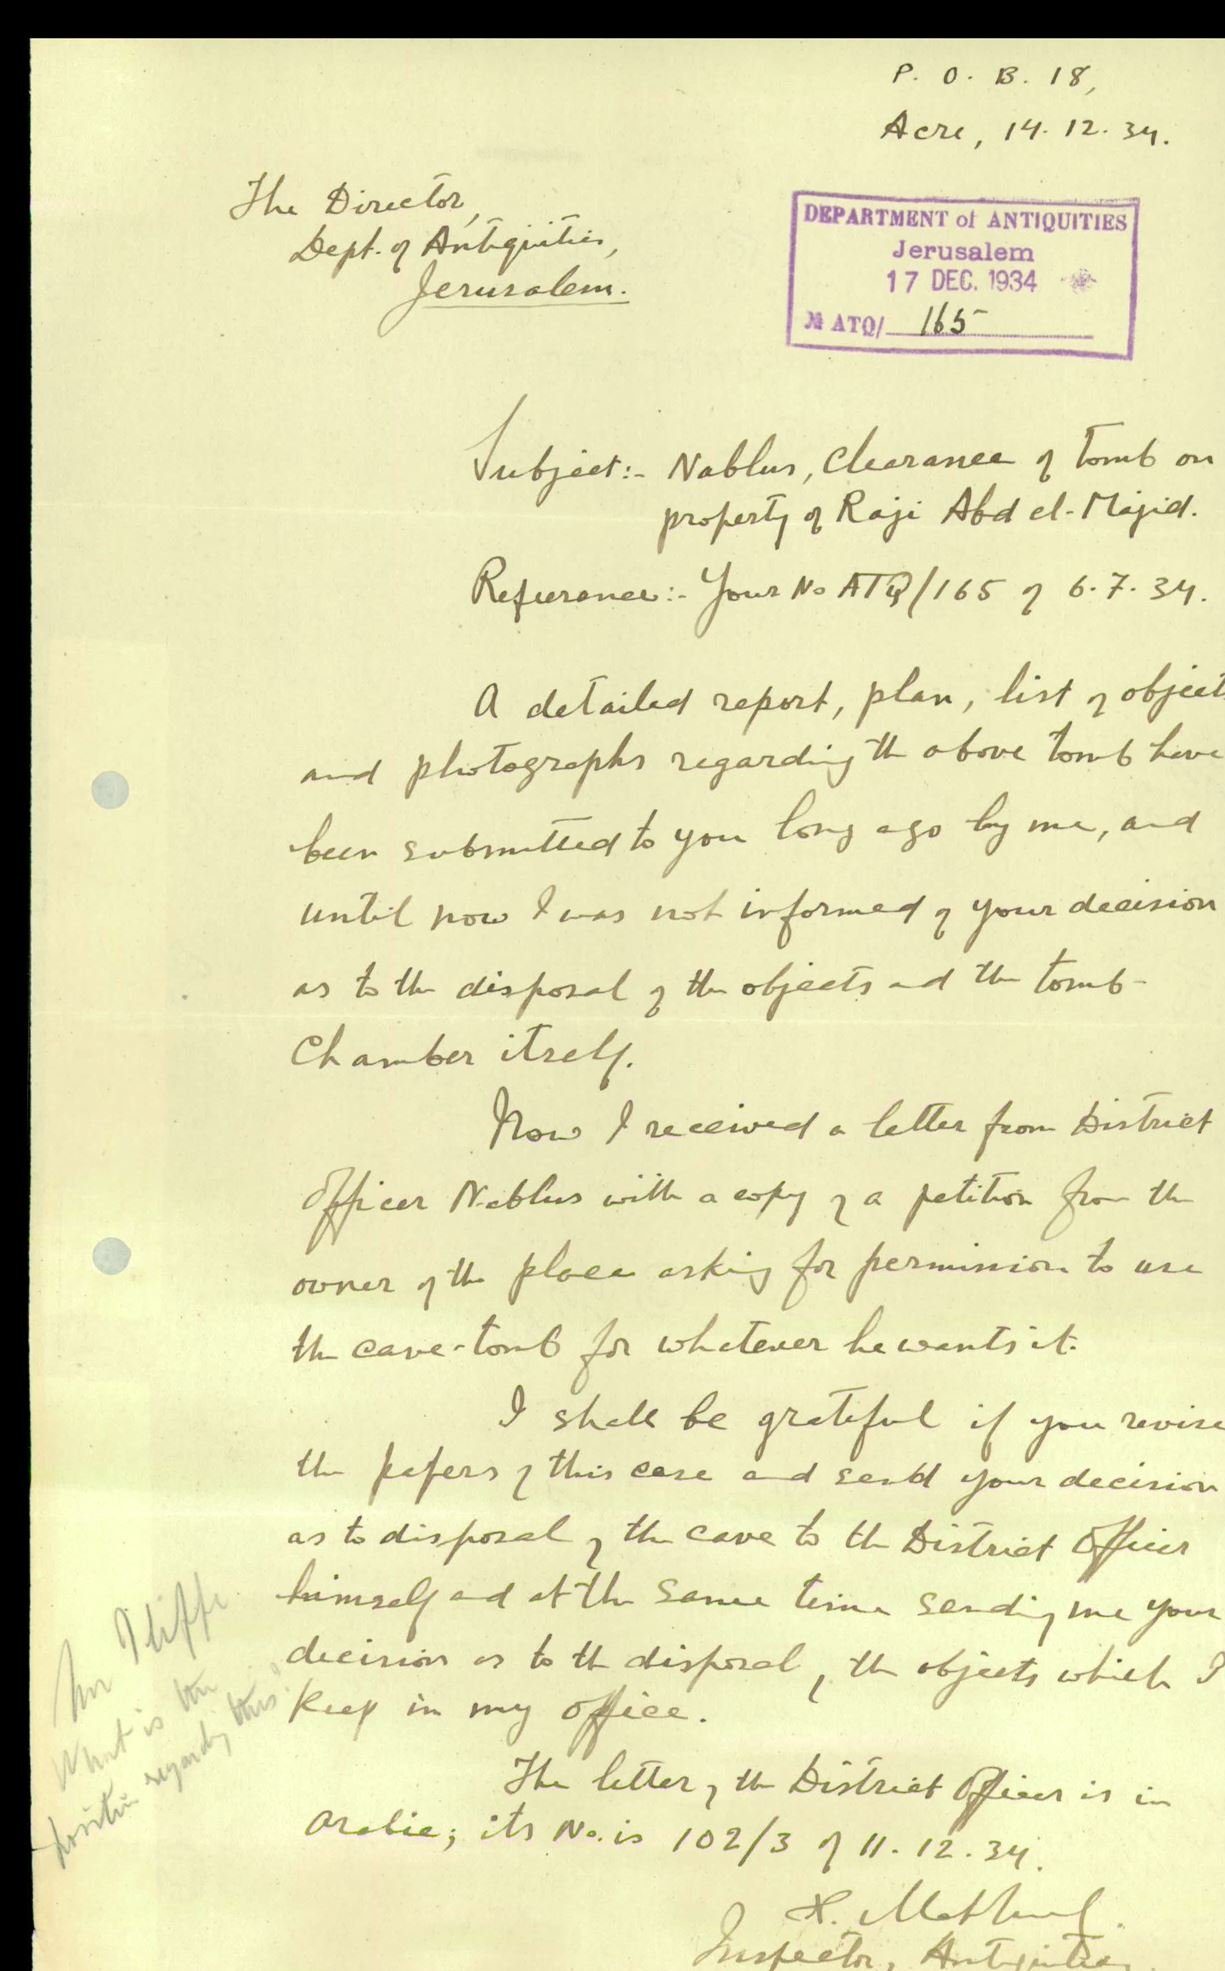 P. O. B. 18,
Acre, 14. 12. 34.
The Director,
Dept. of Antiquities,
Jerusalem.
DEPARTMENT of ANTIQUITIES
Jerusalem
17 DEC. 1934
№ ATQ/ 165
Subject:- Nablus, Clearance of tomb on
property of Raji Abd el-Majid.
Referance:- Your No ATQ/165 of 6.7.34.
A detailed report, plan, list of object
and photographs regarding the above tomb have
been submitted to you long ago by me, and
until now I was not informed of your decision
as to the disposal of the objects and the tomb-
Chamber itself.
Now I received a letter from District
Officer Nablus with a copy of a petition from the
owner of the place asking for permission to use
the cave-tomb for whatever he wants it.
I shall be grateful if you revise
the papers of this case and send your decision
as to disposal of the cave to the District Officer
himself and at the same time sending me your
decision as to the disposal of the objects which I
keep in my office.
The letter of the District Officer is in
Arabic; its No. is 102/3 of 11.12.34.
Inspector, Antiquities
Mr Iliffe
What is the
position regarding this?